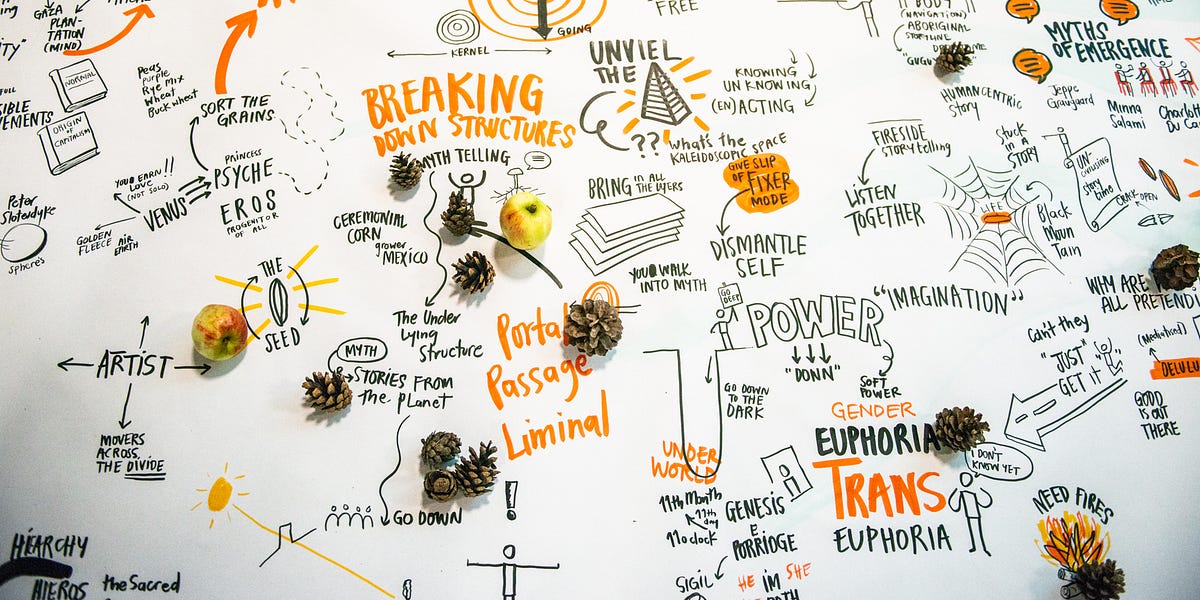 GAZA
PLAN-
TATION
(MIND)
NORMAL
ORIGIN
OF
CAPITALISM
Peas
Purple
Rye mix
Wheat
Buckwheat
SORT THE
GRAINS
PRINCESS
PSYCHE
EROS
PROGENITOR
OF ALL
YOU EARN!!
LOVE
(NOT SOLO)
VENUS
GOLDEN
FLEECE
AIR
EARTH
Peter
Sloterdyke
Spheres
THE
SEED
ARTIST
MOVERS
ACROSS,
THE DIVIDE
HIEARCHY
HIEROS
the Sacred
KERNEL
GOING
BREAKING
DOWN STRUCTURES
MYTH TELLING
CEREMONIAL
CORN
grower
MEXICO
The Under
Lying
Structure
MYTH
STORIES FROM
the planet
GO DOWN
!
Portal
Passage
Liminal
FREE
UNVIEL
THE
??
What's the
KALEIDOSCOPIC SPACE
KNOWING
UNKNOWING
(EN)ACTING
BRING IN ALL
THE LAYERS
GIVE SLIP
OF FIXER
MODE
DISMANTLE
SELF
YOU WALK
INTO MYTH
GO
DEEP
POWER
"DONN"
SOFT
POWER
GO DOWN
TO THE
DARK
UNDER
WORLD
11th Month
11th
day
11 o'clock
GENESIS
E
PORRIDGE
SIGIL
HE IM SHE
GENDER
EUPHORIA
TRANS
EUPHORIA
I DON'T
KNOW YET
BODY
(NAVIGATION)
ABORIGINAL
STORYLINE
MYTHS
OF EMERGENCE
HUMAN CENTRIC
Story
Jeppe
Graugaard
Minna
Salami
FIRESIDE
Story telling
LISTEN
TOGETHER
Stuck
in a
STORY
LIFE
Black
Moun
Tain
UN-
CIVILISING
Story
time
CRACK OPEN
"IMAGINATION"
WHY ARE
ALL PRETENDI
Can't they
"JUST"
GET IT
(Mediatised)
DELULU
GOOD
IS OUT
THERE
NEED FIRES